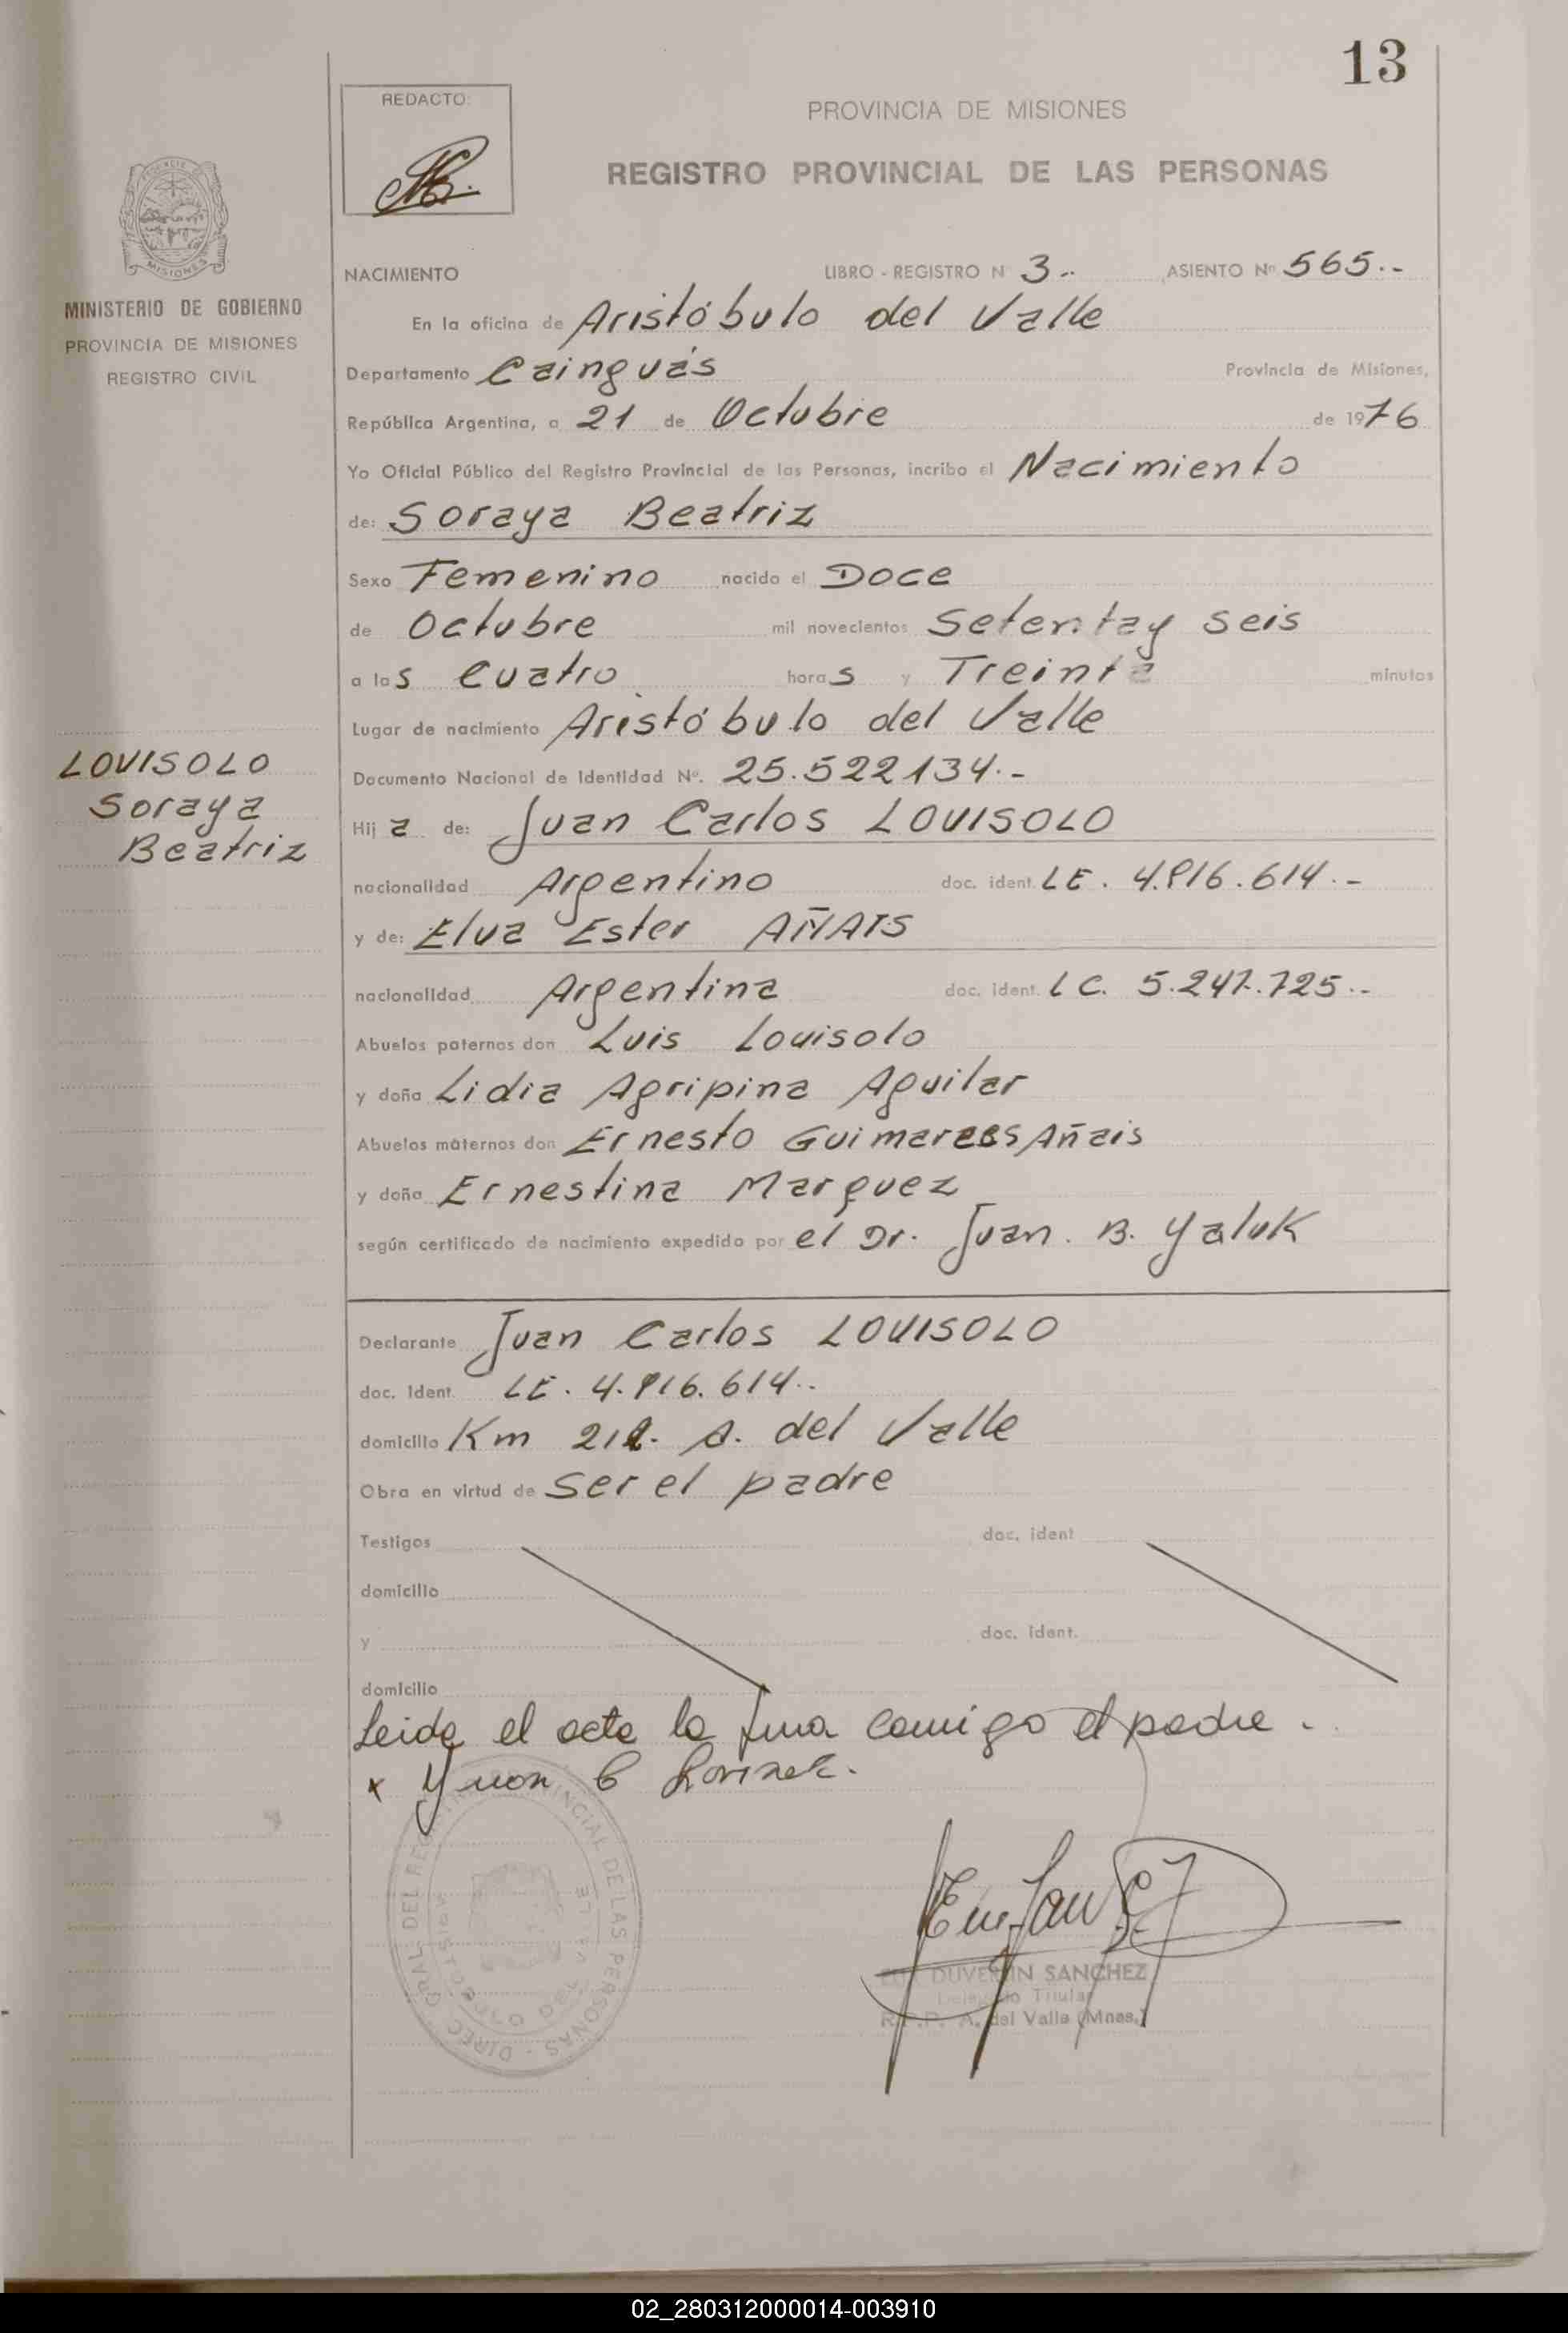 13
REDACTO:
PROVINCIA DE MISIONES
REGISTRO PROVINCIAL DE LAS PERSONAS
MISIONES
MINISTERIO DE GOBIERNO
PROVINCIA DE MISIONES
REGISTRO CIVIL
NACIMIENTO LIBRO - REGISTRO N 3.. ASIENTO Nº 565.-
En la oficina de Aristóbulo del Valle
Departamento Cainguás Provincia de Misiones,
República Argentina, a 21 de Octubre de 1976
Yo Oficial Público del Registro Provincial de las Personas, incribo el Nacimiento
de: Soraya Beatriz
Sexo Femenino nacido el Doce
de Octubre mil novecientos Setentay seis
a las cuatro horas y Treinta minutos
Lugar de nacimiento Aristóbulo del Valle
Documento Nacional de Identidad Nº. 25.522134.-
LOVISOLO
Soraya
Beatriz
Hija de: Juan Carlos LOVISOLO
nacionalidad Argentino doc. ident. LE. 4.816.614.-
y de: Elva Ester AÑAIS
nacionalidad Argentina doc. ident. LC. 5.247.725.-
Abuelos paternos don Luis Lovisolo
y doña Lidia Agripina Aguilar
Abuelos maternos don Ernesto Guimaraes Añais
y doña Ernestina Marquez
según certificado de nacimiento expedido por el Dr. Juan. B. Yaluk
Declarante Juan Carlos LOVISOLO
doc. ident. LE. 4.816.614..
domicilio Km 212. A. del Valle
Obra en virtud de ser el padre
Testigos doc. ident
domicilio
y doc. ident.
domicilio
Leida el acta la firma comigo el padre.
x Juan C
DIREC. GRAL DEL REGISTRO PROVINCIAL DE LAS PERSONAS
ARISTOBULO DEL VALLE
DUVERLIN SANCHEZ
Delegado Titular
R.P.P. A. del Valle (Mnes.)
02_280312000014-003910